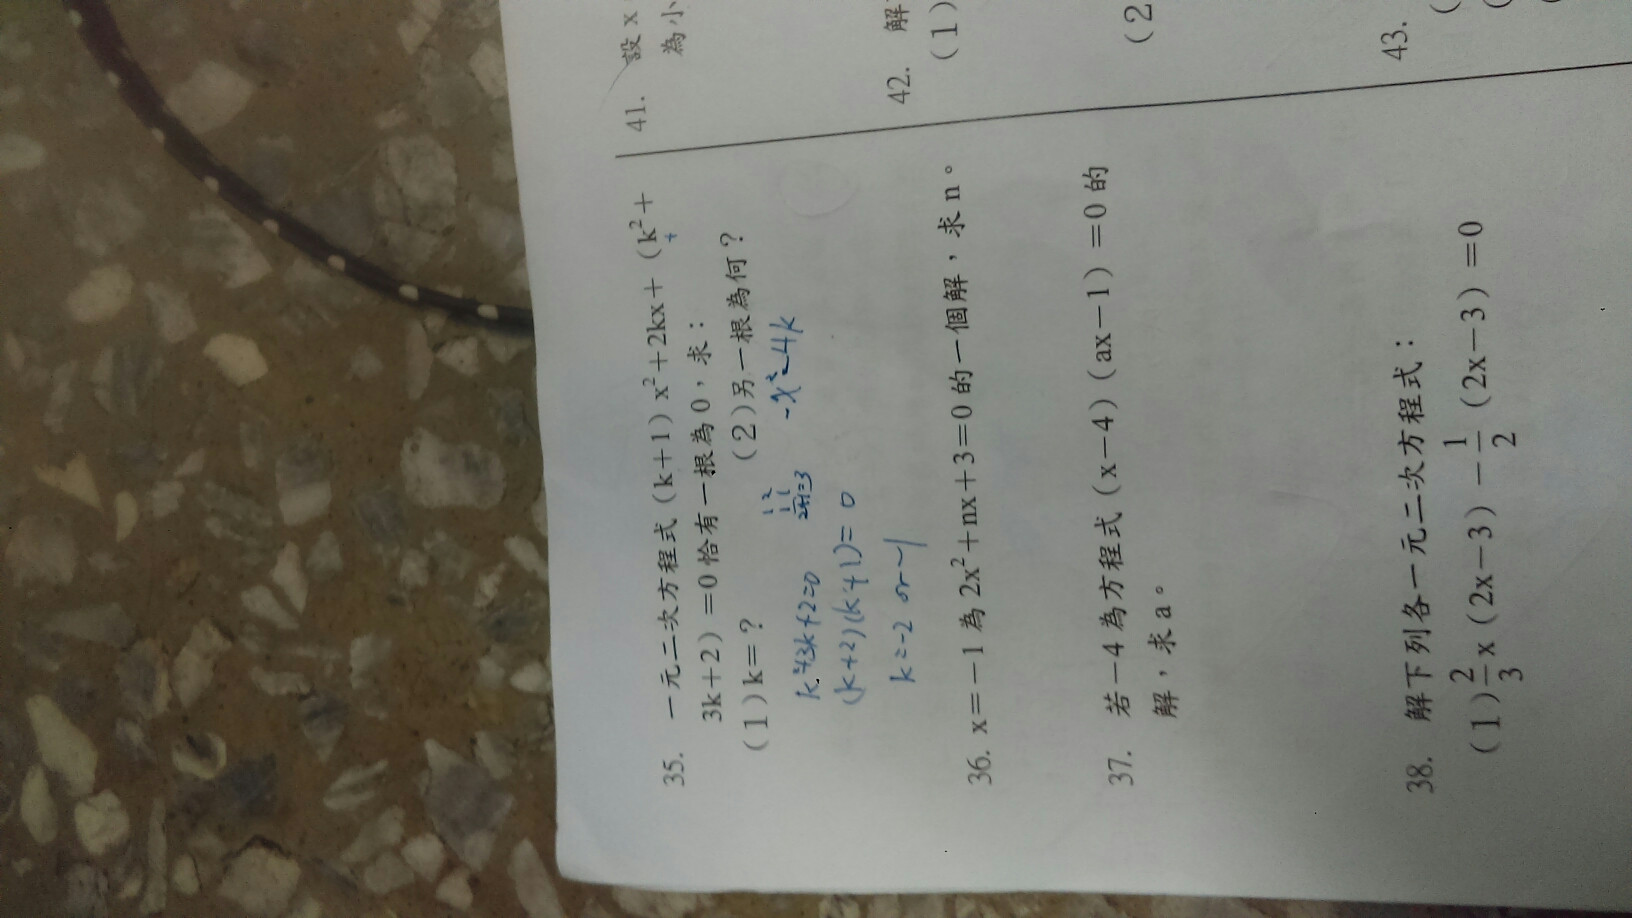 35. 一元二次方程式(k+1)x²+2kx+(k²+
3k+2)=0恰有一根為0，求：
(1)k=？ (2)另一根為何？
1 2
1 1
2+1=3
-x²-4k
k²+3k+2=0
(k+2)(k+1)=0
k=-2 or -1
36. x=-1為2x²+nx+3=0的一個解，求n。
37. 若-4為方程式(x-4)(ax-1)=0的
解，求a。
38. 解下列各一元二次方程式：
(1)2/3x(2x-3)-1/2(2x-3)=0
41. 設x
為小
42. 解
(1)
(2
43.